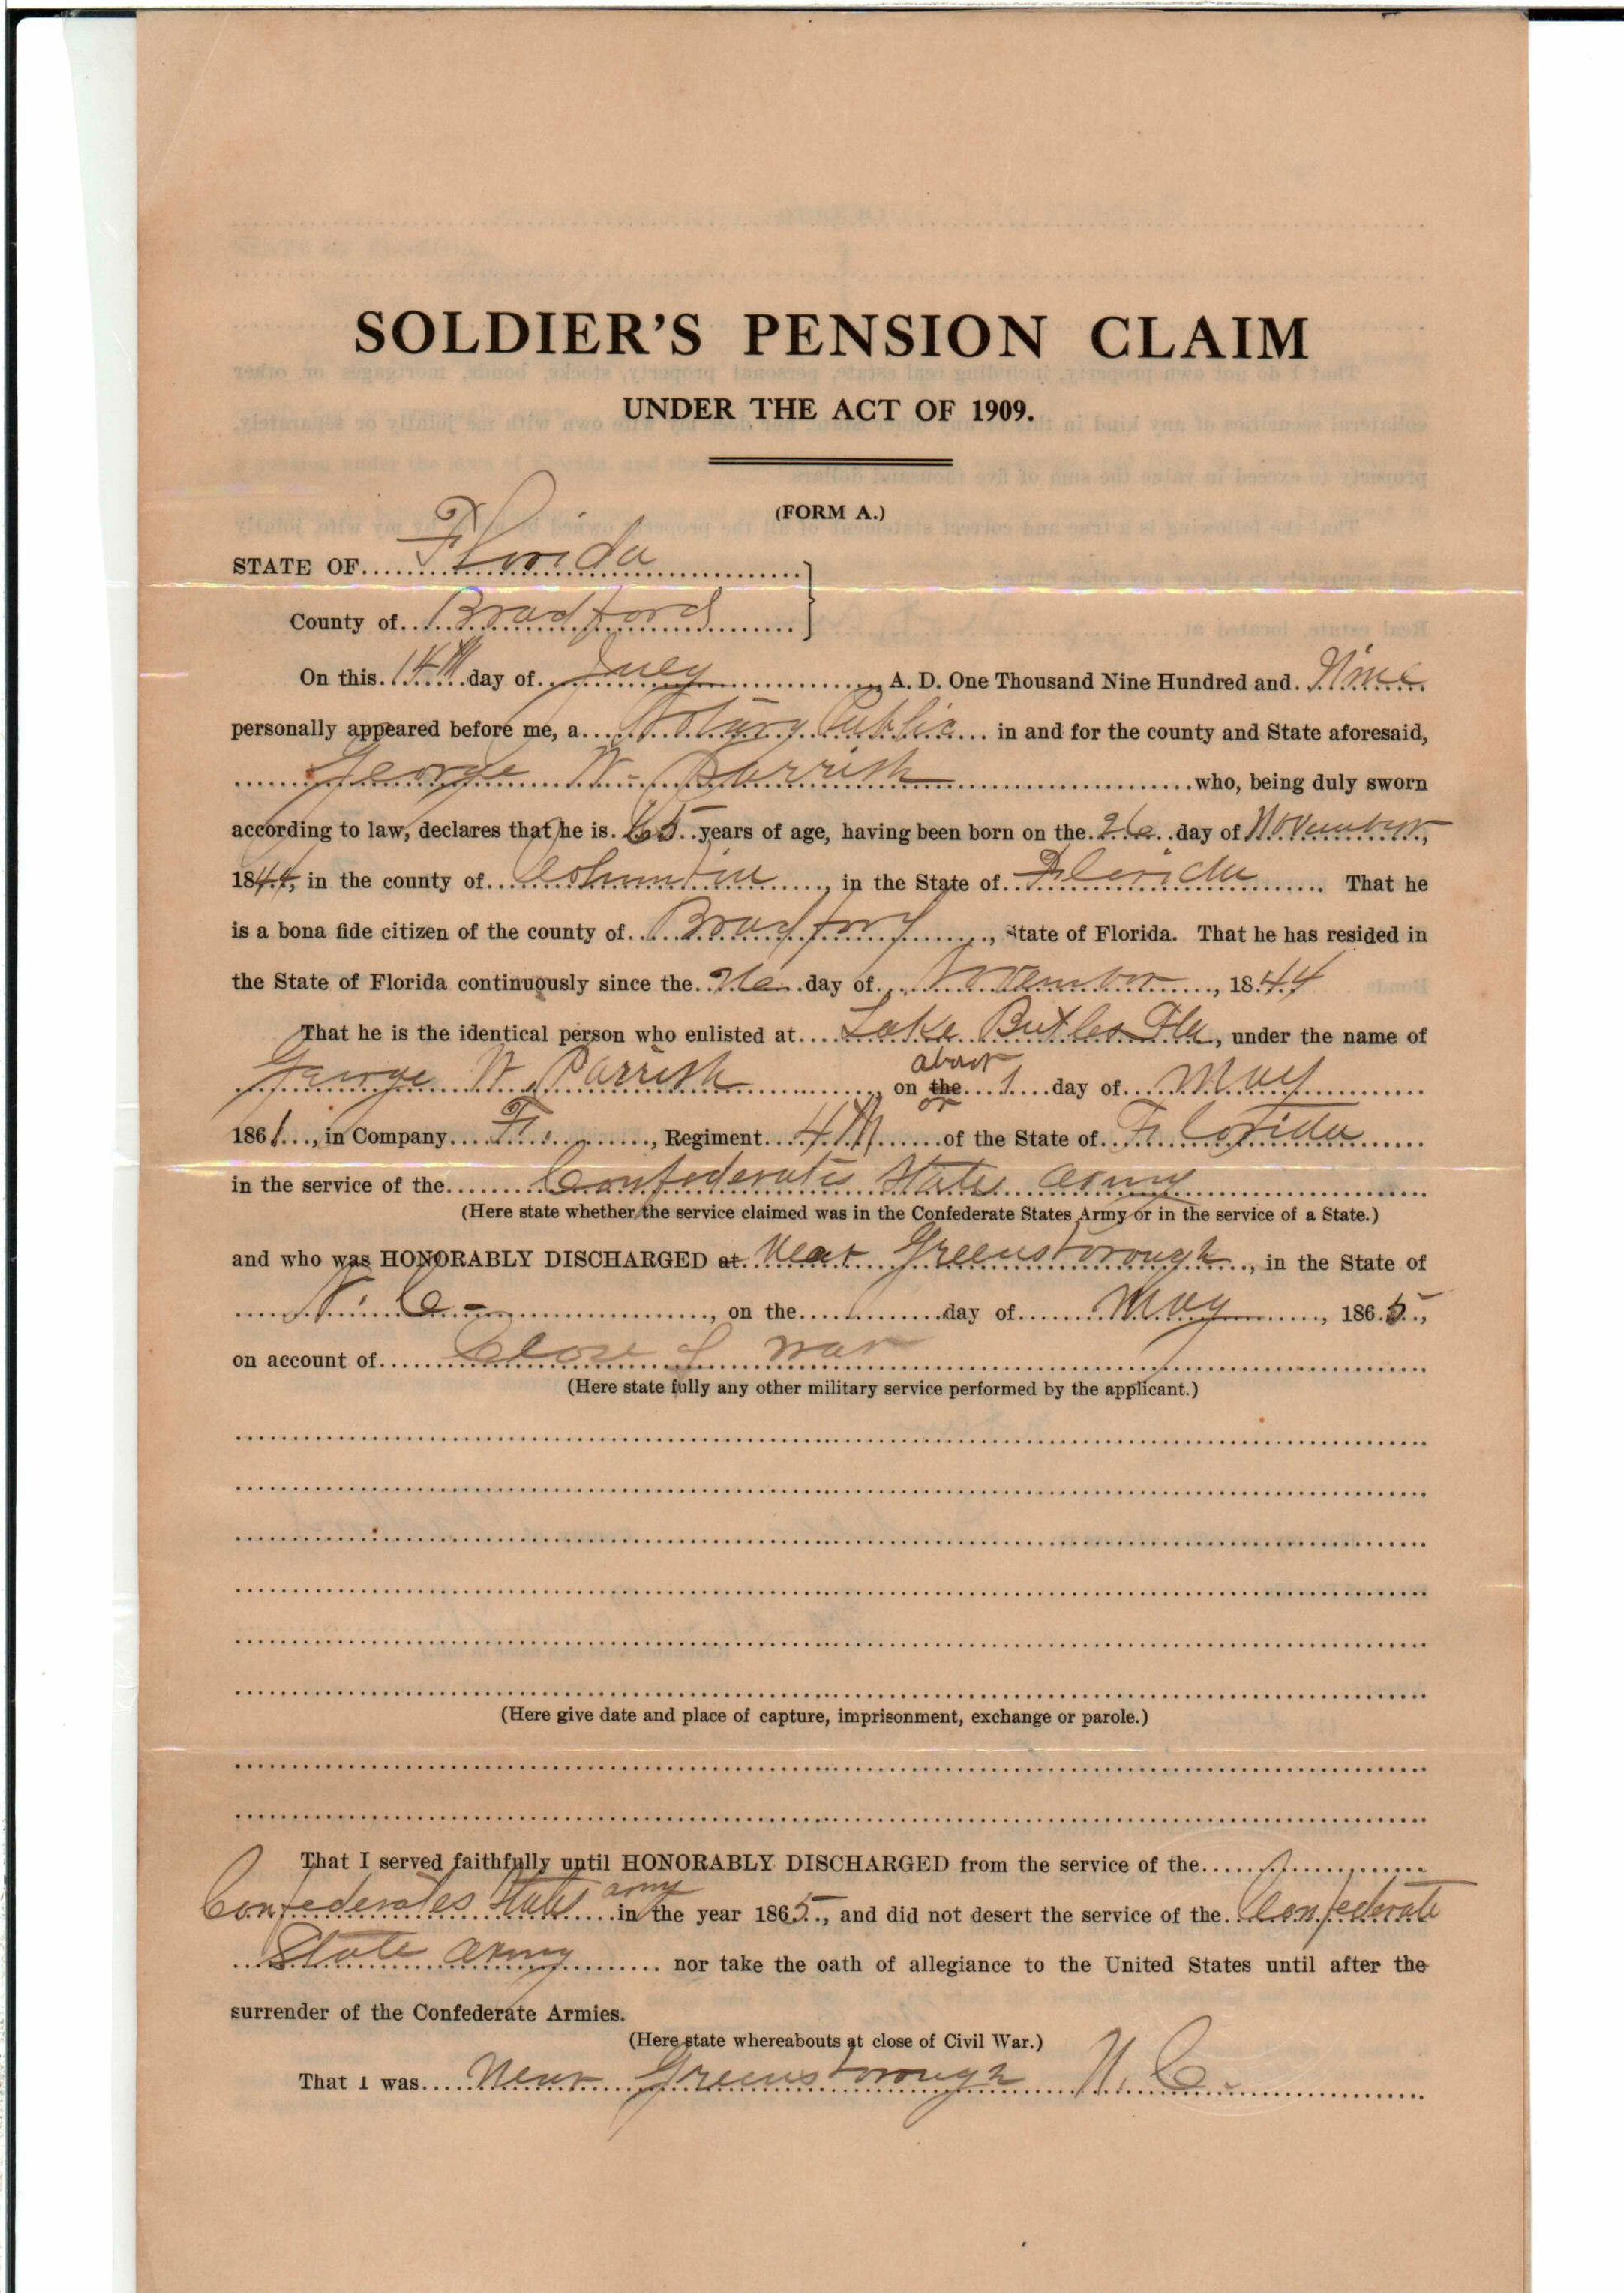 SOLDIER'S PENSION CLAIM
UNDER THE ACT OF 1909.
(FORM A.)
STATE OF Florida
County of Bradford
On this 14th day of July A. D. One Thousand Nine Hundred and Nine
personally appeared before me, a Notary Public in and for the county and State aforesaid,
George W. Parrish who, being duly sworn
according to law, declares that he is 65 years of age, having been born on the 26 day of November,
1844, in the county of Columbia, in the State of Florida. That he
is a bona fide citizen of the county of Bradford, State of Florida. That he has resided in
the State of Florida continuously since the 26 day of November, 1844
That he is the identical person who enlisted at Lake Butler Fla, under the name of
about
George W. Parrish, on the 1 day of May
or
1861, in Company F, Regiment 4th of the State of Florida
in the service of the Confederate State Army
(Here state whether the service claimed was in the Confederate States Army or in the service of a State.)
and who was HONORABLY DISCHARGED at Near Greensborough, in the State of
N. C., on the day of May, 1865,
on account of Close of war
(Here state fully any other military service performed by the applicant.)
(Here give date and place of capture, imprisonment, exchange or parole.)
That I served faithfully until HONORABLY DISCHARGED from the service of the
army
Confederates States in the year 1865, and did not desert the service of the Confederate
State Army nor take the oath of allegiance to the United States until after the
surrender of the Confederate Armies.
(Here state whereabouts at close of Civil War.)
That I was Near Greensborough N. C.